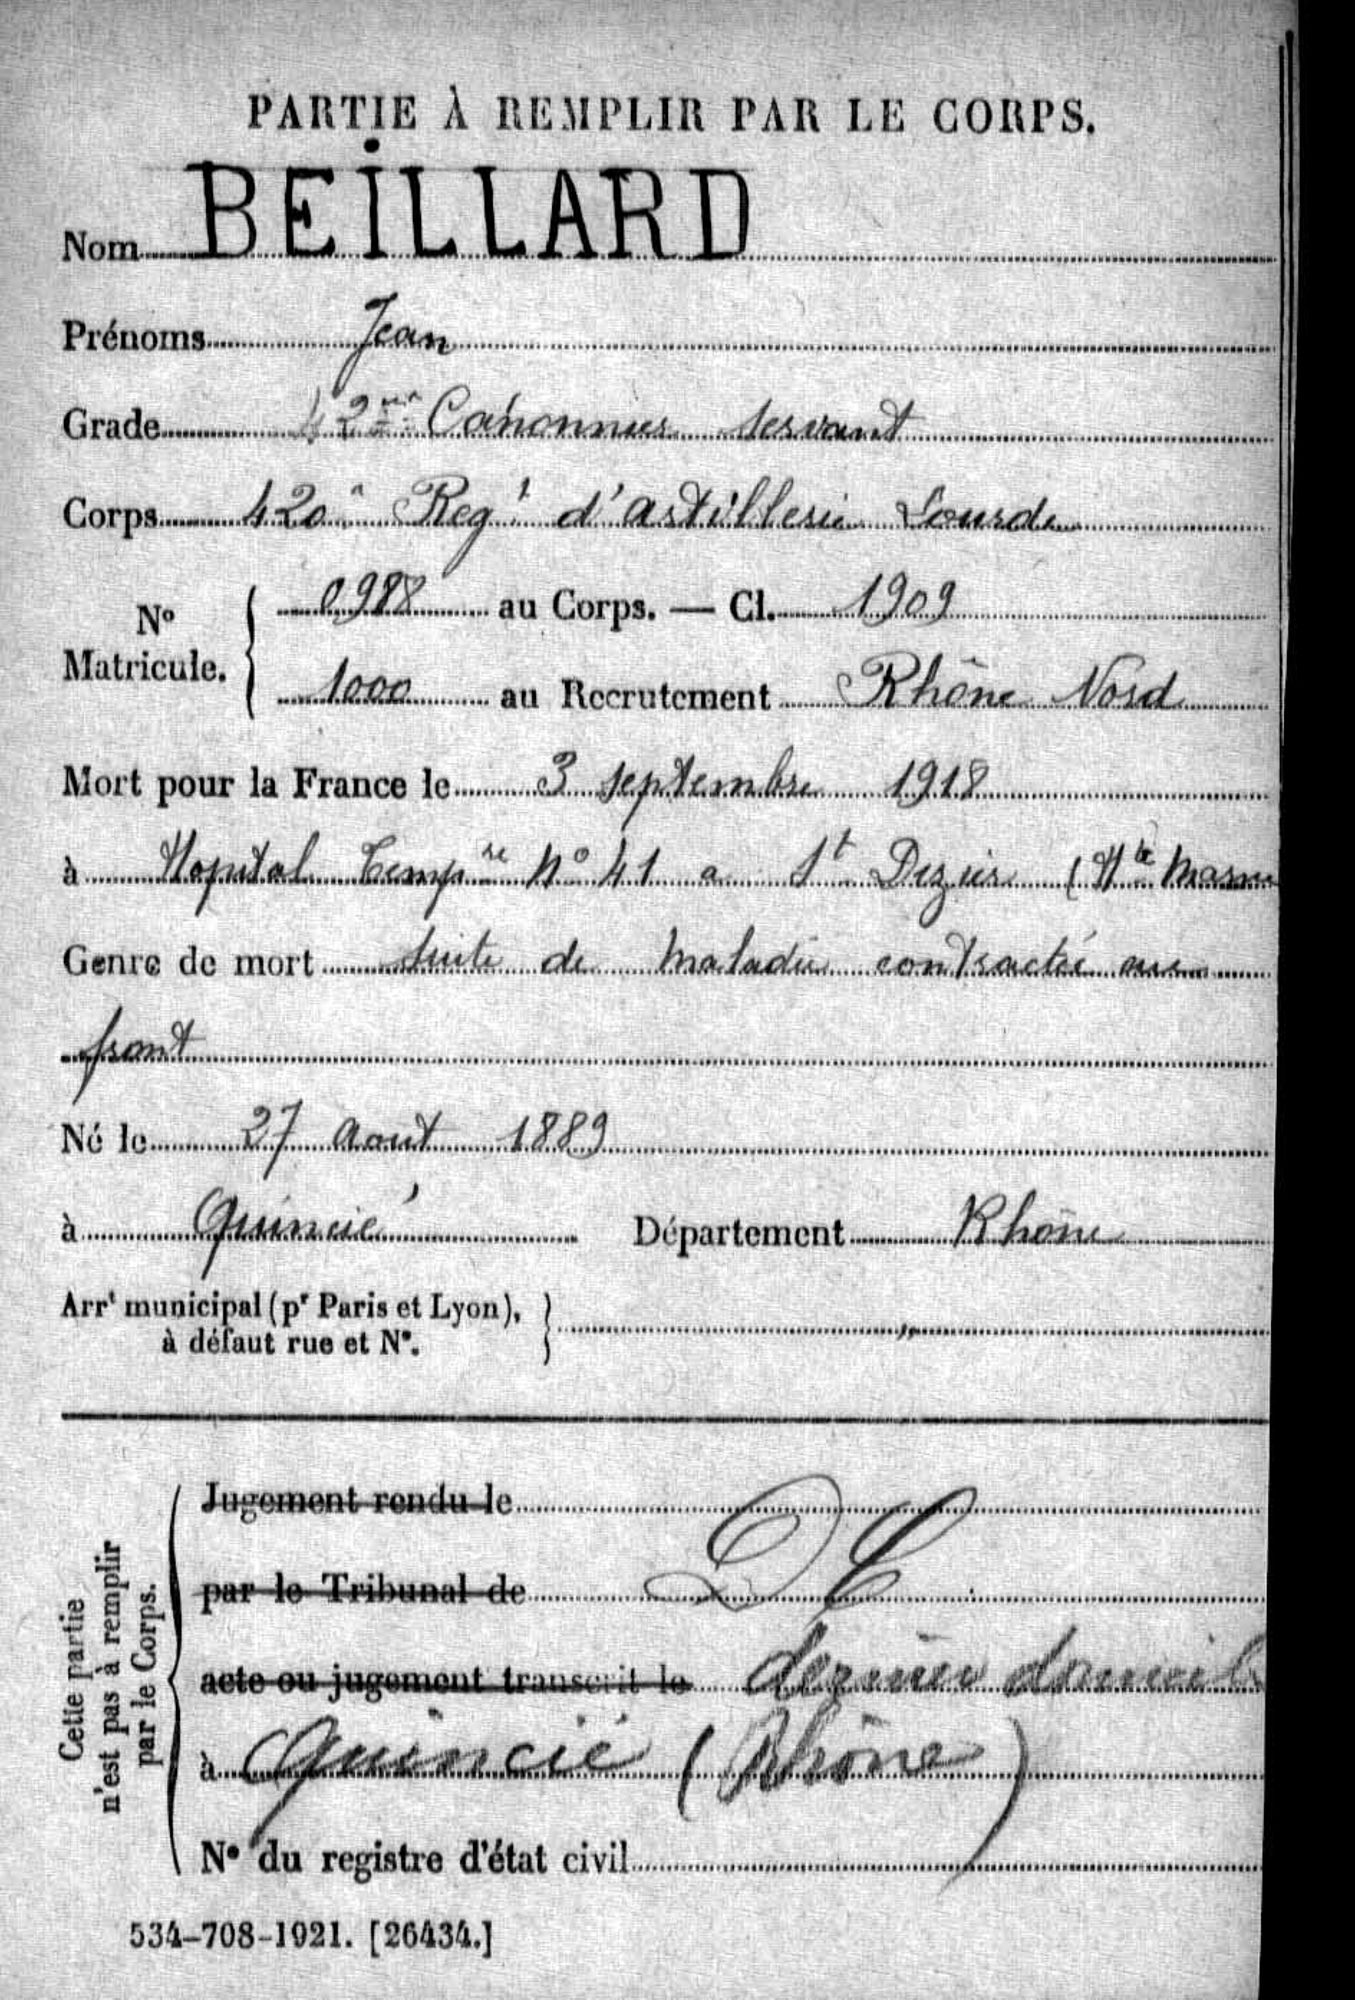 PARTIE À REMPLIR PAR LE CORPS.
Nom BEILLARD
Prénoms Jean
Grade Canonnier servant
Corps 420e Regt d'artillerie Lourde
No Matricule. { 0988 au Corps. — Cl. 1909
1000 au Recrutement Rhône Nord
Mort pour la France le 3 septembre 1918
à Hopital Tempre No 41 a St Dezier (Hte Marne
Genre de mort suite de maladie contractée au
front
Né le 27 Aout 1889
à Quincié Département Rhône
Arrt municipal (pr Paris et Lyon), à défaut rue et No. } "
Cette partie n'est pas à remplir par le Corps.
Jugement rendu le
par le Tribunal de
acte ou jugement transcrit le dernier domicile
à Quincié (Rhône)
No du registre d'état civil
534-708-1921. [26434.]